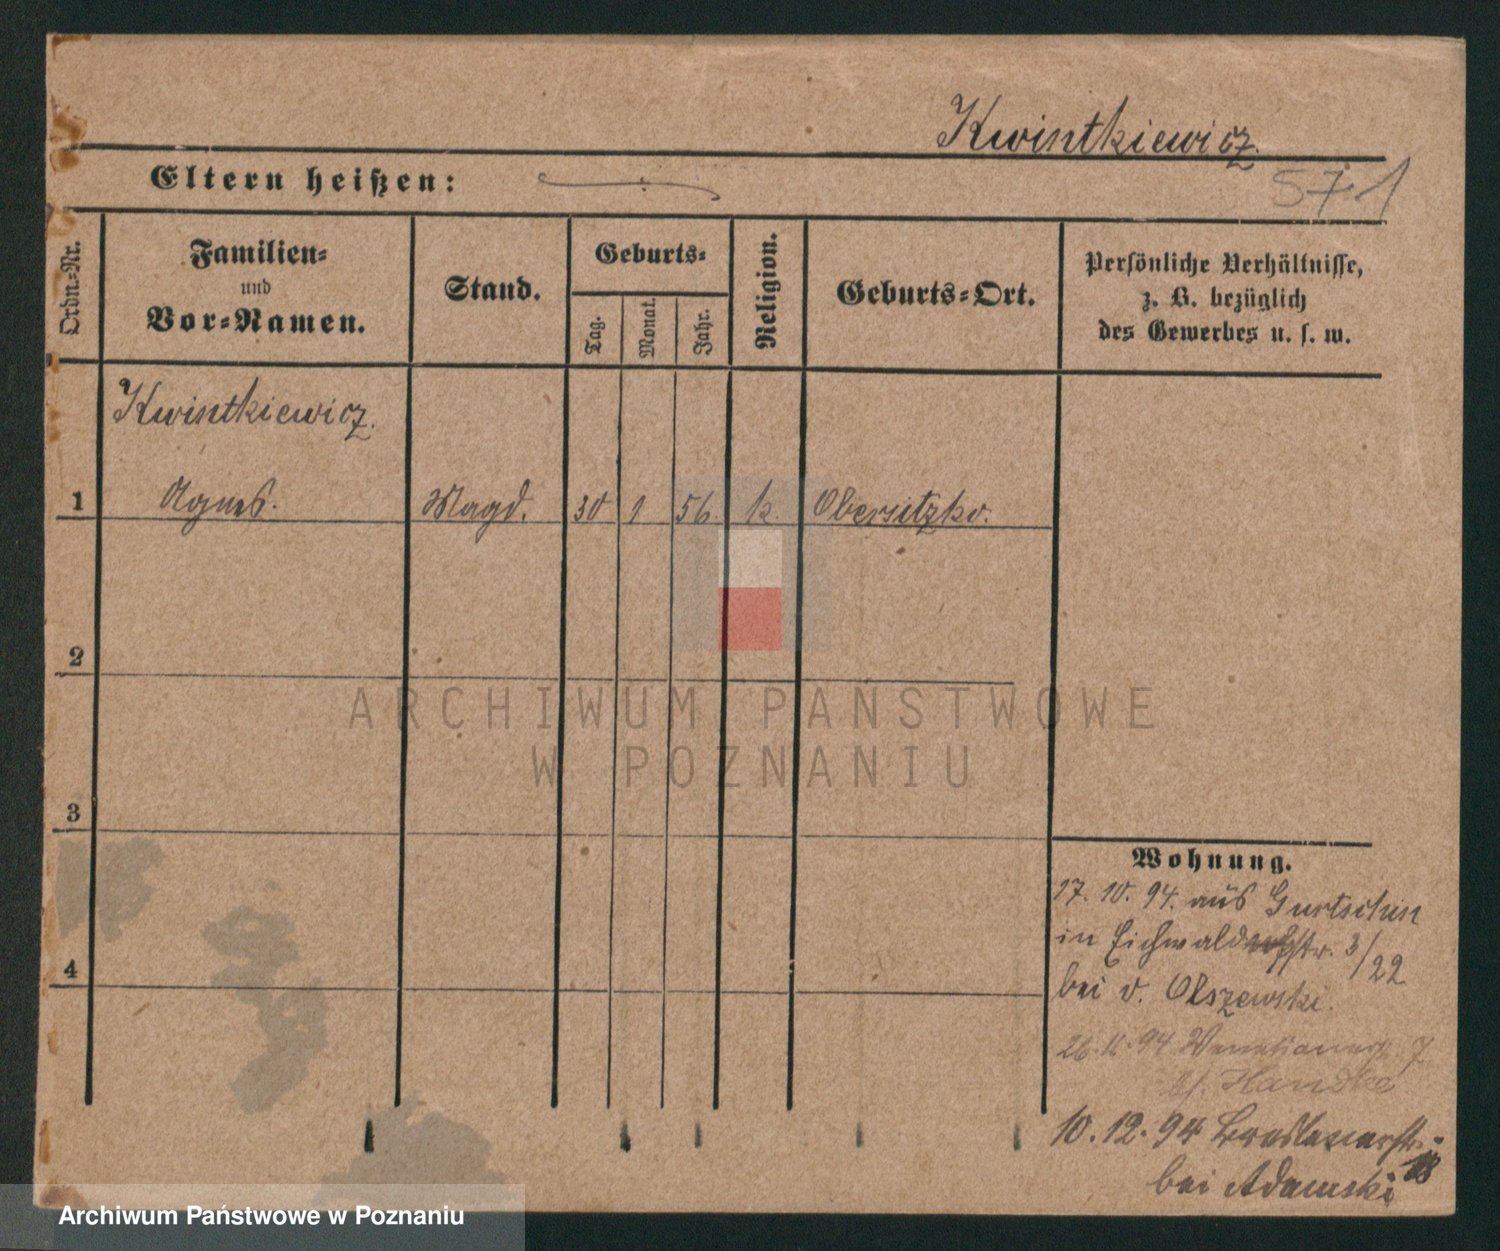 Kwintkiewicz.
Eltern heißen:
57.1
Ordn.-Nr.
Familien-
und
Vor-Namen.
Stand.
Geburts-
Tag.
Monat.
Jahr.
Religion.
Geburts-Ort.
Persönliche Verhältnisse,
z. B. bezüglich
des Gewerbes u. s. w.
Kwintkiewicz.
1 Agnes. Magd. 30 1 56. k. Obersitzko.
2
ARCHIWUM PAŃSTWOWE
W POZNANIU
3
4
Wohnung.
17. 10. 94. aus Gurtschin
in Eichwaldstr. 3/22
bei v. Olszewski.
26. 11. 94 7
Handke
10. 12. 94 Breslauerstr.
18
bei Adamski
Archiwum Państwowe w Poznaniu